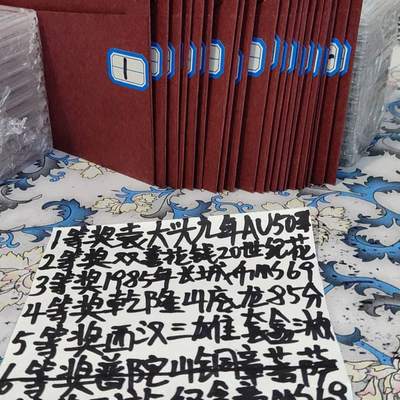 1
1等奖袁大头九年AU50
2等奖双喜花钱20世纪花
3等奖1985年长城币MS69
4等奖乾隆山底龙85分
5等奖西汉三雄套
6等奖普陀山铜章菩萨
MS68